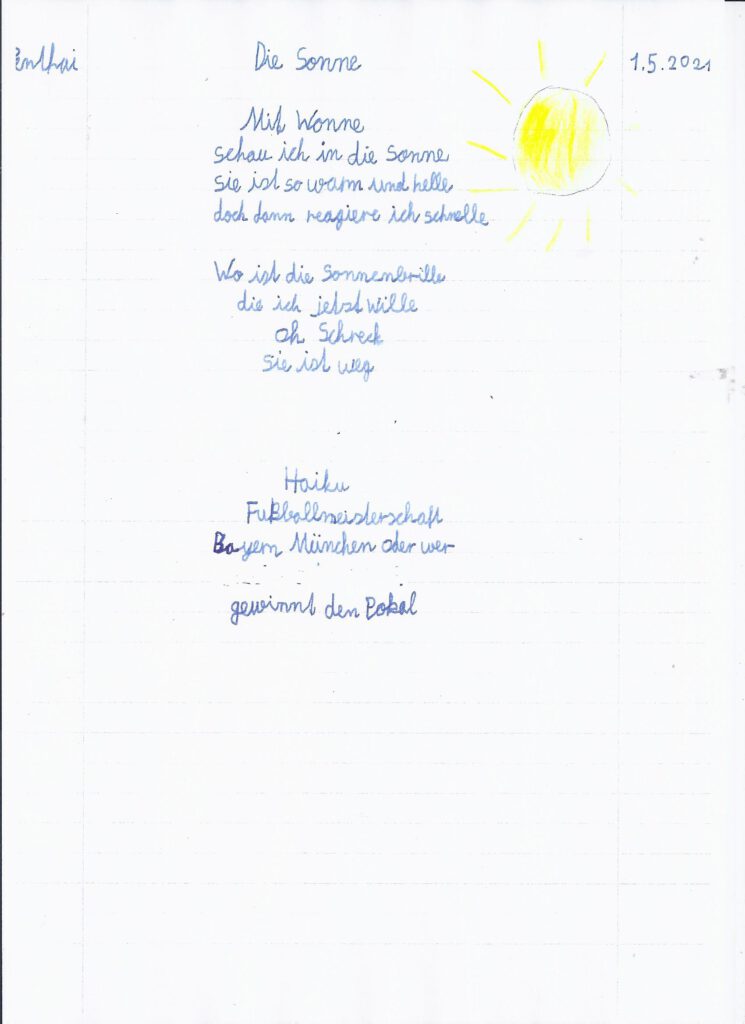 Die Sonne
1.5.2021
Mit Wonne
schau ich in die Sonne
sie ist so warm und helle
doch dann reagiere ich schnelle
Wo ist die Sonnenbrille
die ich jetzt wille
oh Schreck
sie ist weg
Haiku
Fußballmeisterschaft
Bayern München oder wer
gewinnt den Pokal